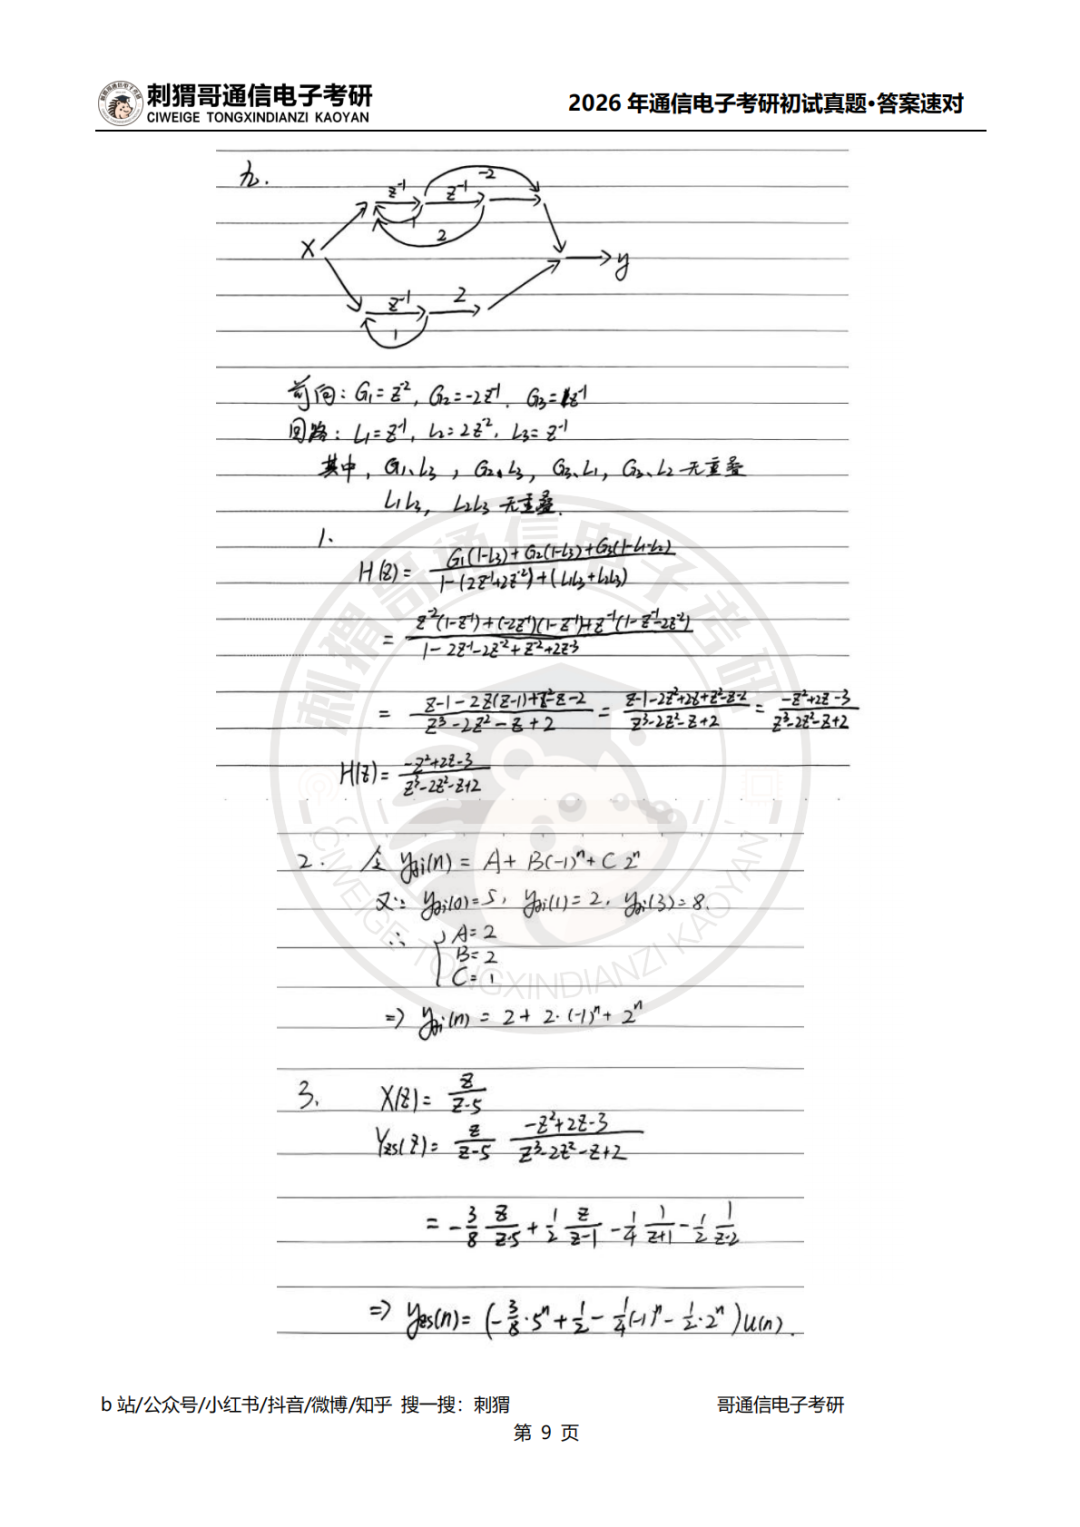 刺猬哥通信电子考研
CIWEIGE TONGXINDIANZI KAOYAN
2026 年通信电子考研初试真题•答案速对
九.
z⁻¹ z⁻¹ -2
1 2
X y
z⁻¹ 2
1
前向: G₁=z⁻², G₂=-2z⁻¹, G₃=z⁻¹
回路: L₁=z⁻¹, L₂=2z⁻², L₃=z⁻¹
其中, G₁、L₃, G₂、L₃, G₃、L₁, G₃、L₂ 无重叠
L₁L₃, L₂L₃ 无重叠.
1.
H(z)= G₁(1-L₃)+G₂(1-L₃)+G₃(1-L₁-L₂) / 1-(2z⁻¹+2z⁻²)+(L₁L₃+L₂L₃)
= z⁻²(1-z⁻¹)+(-2z⁻¹)(1-z⁻¹)+z⁻¹(1-z⁻¹-2z⁻²) / 1-2z⁻¹-2z⁻²+z⁻²+2z⁻³
= z-1-2z(z-1)+z²-z-2 / z³-2z²-z+2 = z-1-2z²+2z+z²-z-2 / z³-2z²-z+2 = -z²+2z-3 / z³-2z²-z+2
H(z)= -z²+2z-3 / z³-2z²-z+2
2. 令 yzi(n) = A+ B(-1)ⁿ+ C 2ⁿ
又∵ yzi(0)=5, yzi(1)=2, yzi(3)=8.
∴ { A=2
B=2
C=1
=> yzi(n) = 2+ 2·(-1)ⁿ+ 2ⁿ
3. X(z)= z / z-5
Yzs(z)= z / z-5 -z²+2z-3 / z³-2z²-z+2
= -3/8 z/z-5 + 1/2 z/z-1 - 1/4 1/z+1 - 1/2 1/z-2
=> yzs(n)= (-3/8·5ⁿ+1/2-1/4(-1)ⁿ-1/2·2ⁿ)u(n).
刺猬哥通信电子考研
CIWEIGE TONGXINDIANZI KAOYAN
b 站/公众号/小红书/抖音/微博/知乎 搜一搜：刺猬 哥通信电子考研
第 9 页